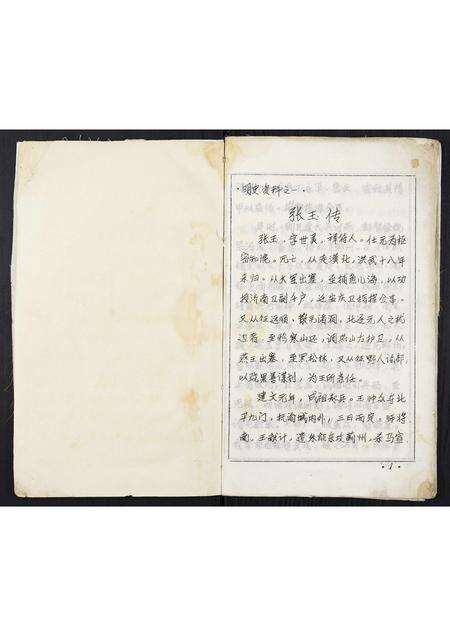 ·明史资料之一·
张玉传
张玉，字世美，祥符人。仕元为枢
密知院。元亡，从走漠北，洪武十八年
来归。从大军出塞，至捕鱼儿海，以功
授济南卫副千户，迁安庆卫指挥佥事。
又从征远顺、散毛诸洞，北逐元人之扰
边者，至鸦寒山还，调燕山左护卫。从
燕王出塞，至黑松林，又从征野人诸部，
以骁果善谋划，为王所亲任。
建文元年，成祖起兵。玉帅众夺北
平九门，抚谕城内外，三日而定。师将
南，玉献计，遣朱能东攻蓟州，杀马宣
·1·